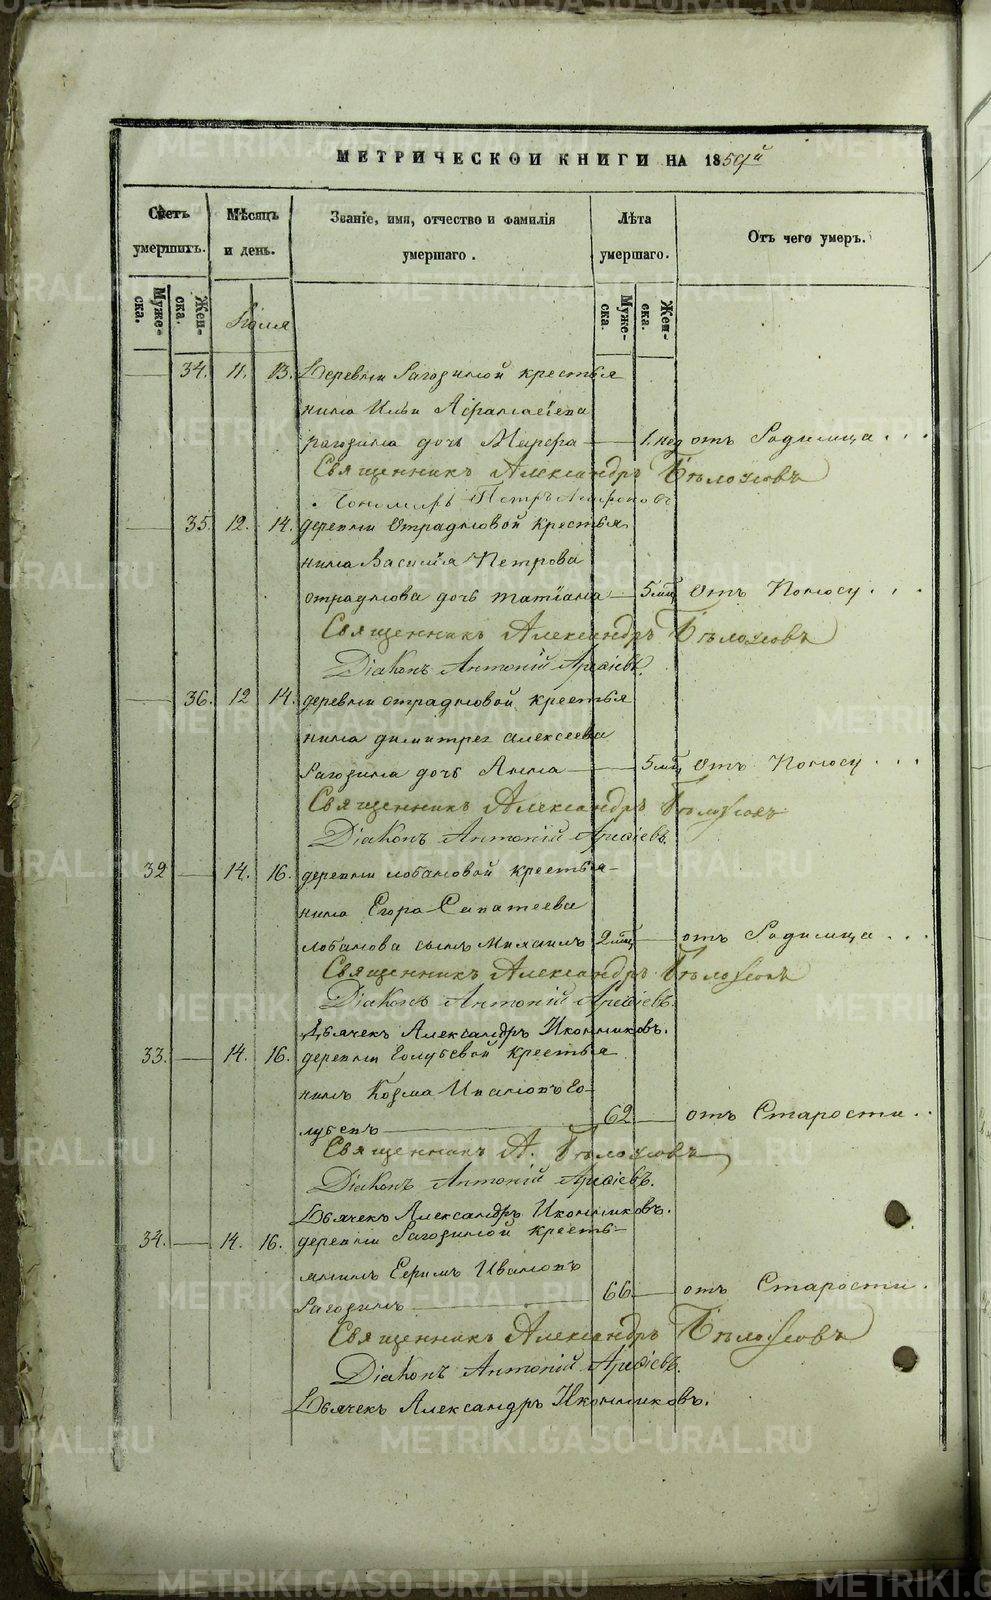 МЕТРИЧЕСКОЙ КНИГИ НА 1859й
Счетъ умершихъ.
Мѣсяцъ и день.
Званіе, имя, отчество и фамилія умершаго.
Лѣта умершаго.
Отъ чего умеръ.
Муже-ска.
Жен-ска.
Муже-ска.
Жен-ска.
Іюля
34. 11. 13. Деревни Рагозиной крестья
нина Ильи Афанасіева
рагозина дочь Марфа 1. нед отъ Родимца...
Священникъ Александръ Бѣлоусовъ
Пономарь Петръ
35 12. 14. деревни Отрадновой крестья
нина Василія Петрова
отраднова дочь татіана 5 мѣц Отъ Поносу...
Священникъ Александръ Бѣлоусовъ
Діаконъ Антоній Арефіевъ.
36. 12 14. деревни отрадновой крестья
нина димитрея алексеева
Рагозина дочь Анна 5 мѣц Отъ Поносу...
Священникъ Александръ Бѣлоусовъ
Діаконъ Антоній Арефіевъ.
32 14. 16. деревни лобановой крестья-
нина Егора Сапатеева
лобанова сынъ Михаилъ 2 мѣц отъ Родимца...
Священникъ Александръ Бѣлоусовъ
Діаконъ Антоній Арефіевъ.
Дьячекъ Александръ Иконниковъ.
33. 14. 16. деревни Голубевой крестья
нинъ Козма Ивановъ Го-
лубевъ 62 отъ Старости..
Священникъ А. Бѣлоусовъ
Діаконъ Антоній Арефіевъ.
Дьячекъ Александръ Иконниковъ.
34. 14. 16. деревни Рагозиной кресть-
янинъ Ефимъ Ивановъ
Рагозинъ 66 отъ Старости.
Священникъ Александръ Бѣлоусовъ
Діаконъ Антоній Арефіевъ.
Дьячекъ Александръ Иконниковъ.
METRIKI.GASO-URAL.RU